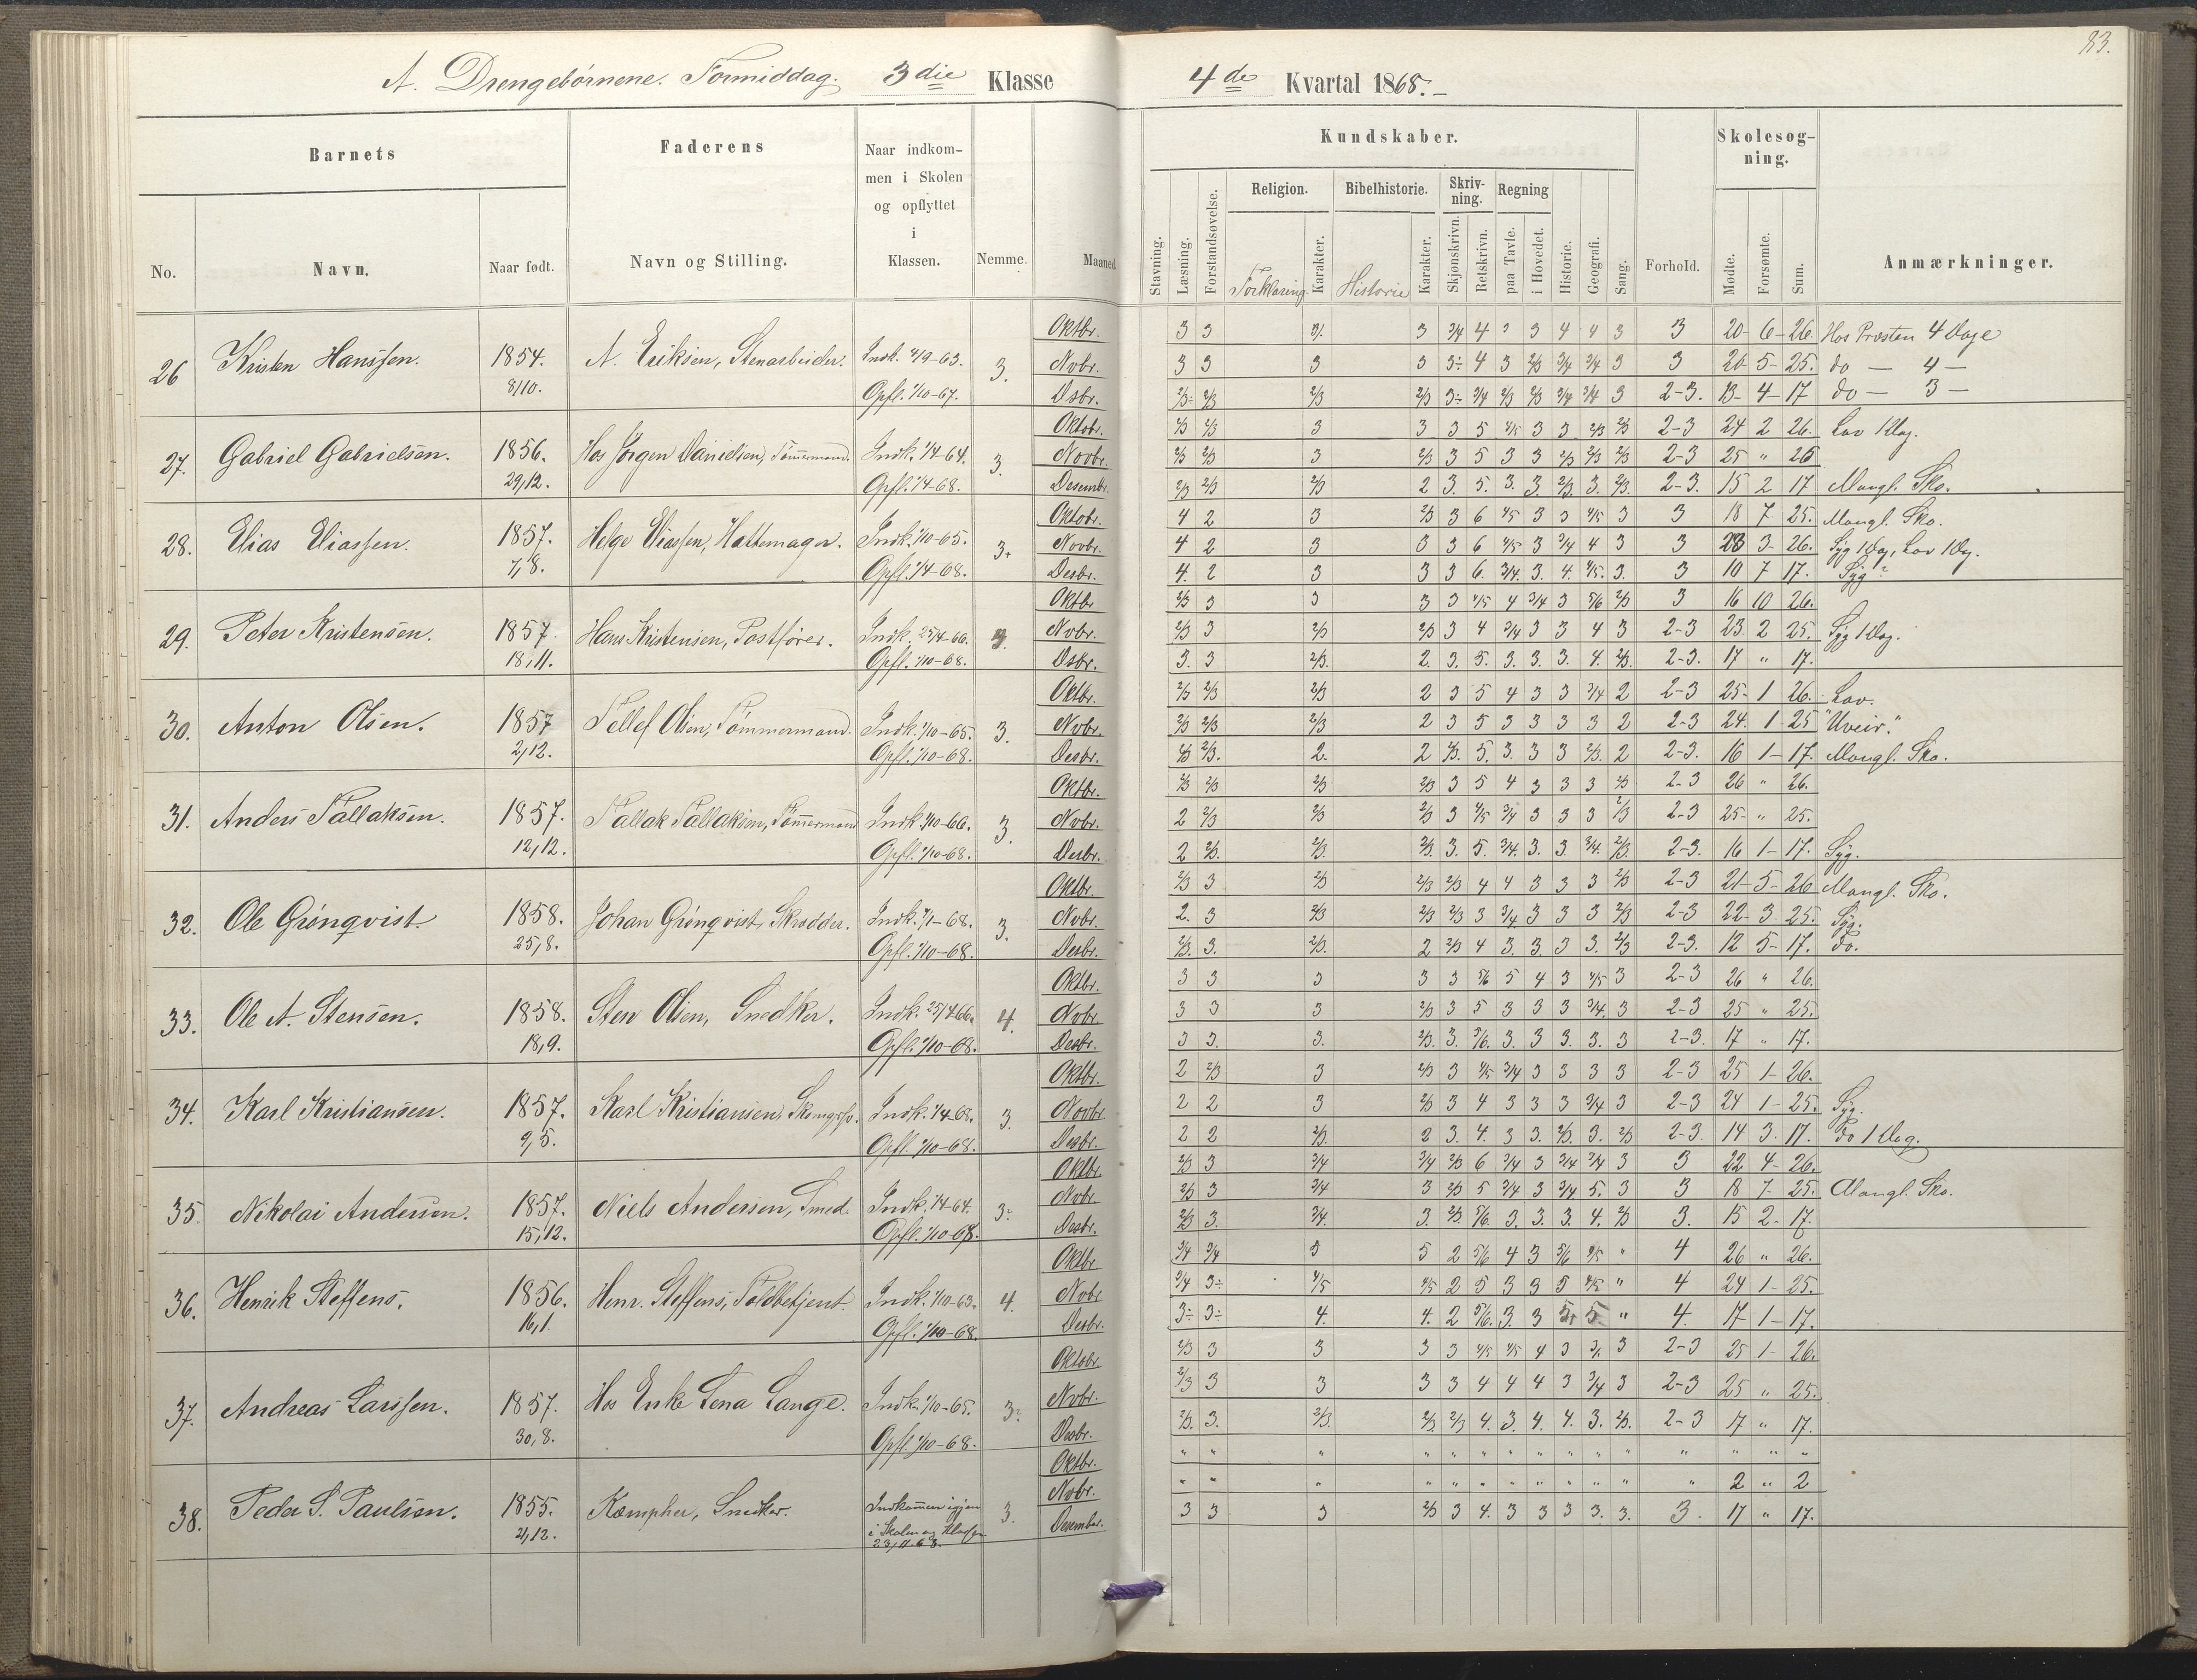 83.
A. Drengebørnene. Formiddag. 3die Klasse
4de Kvartal 1868.
Barnets
Faderens
Naar indkommen i Skolen og opflyttet i Klassen.
No. Navn. Naar født. Navn og Stilling. Nemme. Maaned
Kundskaber.
Skolesøgning.
Religion. Bibelhistorie. Skrivning. Regning
Stavning. Læsning. Forstandsøvelse. Forklaring Karakter. Historie Karakter. Skjønskrivn. Retskrivn. paa Tavle. i Hovedet. Historie. Geografi. Sang. Forhold. Mødte. Forsømte. Sum. Anmærkninger.
26 Kristen Hanssen. 1854. 8/10. A. Eriksen, Stenarbeider. Indk. 4/9-63. Opfl. 1/10-67. 3.
Oktbr. 3 3 3 3 3/4 4 3 3 4 4 3 3 20 - 6 - 26. Hos Præsten 4 Dage
Novbr. 3 3 3 3 3÷ 4 3 2/3 3/4 3/4 3 3 20 5 - 25. do — 4 —
Dsbr. 2/3÷ 2/3 2/3 2/3 3÷ 3/4 2/3 2/3 3/4 3/4 3 2-3. 13 - 4 - 17 do — 3 —
27. Gabriel Gabrielsen. 1856. 29/12. Hos Jörgen Danielsen, Tømmermand. Indk. 1/4-64. Opfl. 1/4-68. 3.
Oktobr. 2/3 2/3 3 3 3 5 4/5 3 3 2/3 2/3 2-3 24 2 26. Lov 1 Dag.
Novbr. 2/3 2/3 3 2/3 3 5 3 3 2/3 2/3 2/3 2-3 25 " 25
Desembr. 2/3 2/3 2/3 2 3. 5. 3. 3. 2/3. 3. 2/3. 2-3. 15 2 17 Mangl. Sko.
28. Elias Eliassen. 1857. 7/8. Helge Eliassen, Hattemager. Indk. 1/10-65. Opfl. 1/4-68. 3.
Oktobr. 4 2 3 2/3 3 6 4/5 3 3 4/5 3 3 18 7 25. Mangl. Sko.
Novbr. 4 2 3 3 3 6 4/5 3 3/4 4 3 3 23 3 - 26. Syg 1 Dag, Lov 1 Dg.
Desbr. 4. 2 3 3 3 6. 3/4. 3. 4. 4/5. 3. 3 10 7 17. Syg
29. Peter Kristensen. 1857. 18/11. Hans Kristensen, Postfører. Indk. 25/4-66. Opfl. 1/10-68. 3.
Oktbr 2/3 3 3 3 3 4/5 4 3/4 3 5/6 2/3 3 16 10 26.
Novbr. 2/3 3 2/3 2/3 3 4 3/4 3 3 4 3 2-3 23 2 25. Syg 1 Dag.
Dsbr. 3. 3 2/3. 2. 3. 5. 3. 3. 3. 4. 2/3. 2-3. 17 " 17.
30. Anton Olsen. 1857 2/12. Tellef Olsen, Tömmermand. Indk. 1/10-65. Opfl. 1/10-68. 3.
Oktbr. 2/3 2/3 2/3 2 3 5 4 3 3 3/4 2 2-3 25 - 1 26. Lov.
Novbr. 2/3 2/3 2/3 2 3 5 3 3 3 3 2 2-3 24. 1 - 25 "Uveir."
Desbr. 2/3 2/3. 2. 2 2/3. 5. 3. 3 3 2/3. 2 2-3. 16 1 - 17. Mangl. Sko.
31. Anders Tallaksen. 1857. 12/12. Tallak Tallaksen, Tømmermand Indk. 1/10-66. Opfl. 1/10-68. 3.
Oktbr. 2/3 2/3 2/3 2/3 3 5 4 3 3 3 2/3 2-3 26 " 26.
Novbr. 2 2/3 2/3 2/3 3 4/5 3/4 3 3 3 2/3 2-3 25 - " 25.
Desbr. 2 2/3. 2/3. 2/3. 3. 5. 3/4. 3. 3. 3/4. 2/3. 2-3. 16 1 - 17. Syg.
32. Ole Grönqvist 1858. 25/8. Johan Grönqvist, Skrædder. Indk. 7/1-68. Opfl. 1/10-68. 3.
Oktbr. 2/3 3 2/3 2/3 2/3 4 4 3 3 3 2/3 2-3 21 - 5 - 26 Mangl. Sko.
Novbr. 2. 3 2/3 2/3 2/3 3 3/4 3 3 3 2/3 2-3 22 - 3 - 25. Syg.
Desbr. 2/3. 3. 2/3. 2 2/3 4 3. 3. 3 3. 2/3 2-3. 12 5 - 17. do.
33. Ole A. Stensen. 1858. 18/9. Sten Olsen, Snedker. Indk. 25/4 66. Opfl. 1/10-68. 4.
Oktbr. 3 3 3 3 3 5/6 5 4 3 4/5 3 2-3 26 " 26.
Novbr. 3 3 3 2/3 3 5 3 3 3 3/4. 3 2-3 25 " 25.
Desbr. 3 3. 3. 2/3. 3. 5/6. 3. 3 3. 3. 3 2-3. 17 " 17.
34. Karl Kristiansen. 1857. 9/5. Karl Kristiansen, Indk. 1/4 68. Opfl. 1/10-68. 3.
Oktbr. 2 2/3 3 2/3 3 4/5 3/4 3 3 3 3 2-3 25 1 - 26.
Novbr 2 2 3 2/3 3 4 3 3 3 3/4 3 2-3 24 1 - 25. Syg.
Desbr. 2 2 2/3. 2 3. 4. 3 3. 2/3. 3. 2/3 2-3. 14 3. 17. Do 1 Dag.
35. Nikolai Andersen. 1857. 15/12. Niels Andersen, Smed. Indk. 1/4-64. Opfl. 1/10-68. 3÷
Oktbr 2/3 3 3/4 3/4 2/3 6 3/4 3 3/4 3/4 3 3 22 4 - 26.
Novbr. 2/3 3 3/4 3 2/3 5 3/4 3 3/4 5. 3 3 18 7 - 25. Mangl. Sko.
Desbr. 2/3 3. 3/4. 3. 2/3. 5/6. 3. 3. 3. 4. 2/3 3. 15 2 - 17.
36. Henrik Steffens. 1856. 16/1. Henr. Steffens, Toldbetjent. Indk. 1/10-63. Opfl. 1/10-68. 4.
Oktbr 3/4 3/4 5 5 2 5/6 4 3 5/6 4/5 " 4 26 " 26.
Novbr 3/4 3÷ 4/5 4/5 2 5 3 3 5 4/5 " 4 24 1 - 25.
Desbr. 3÷ 3÷ 4. 4. 2 5/6. 3. 3 5. 5 " 4. 17 1 - 17.
37. Andreas Larssen. 1857. 30/8. Hos Enke Lena Lange. Indk. 1/10-65. Opfl. 1/10-68. 3÷
Oktobr 2/3 3 3 3 3 4/5 4/5 4 3 3. 3 2-3 25 1 - 26.
Novbr. 2/3 3 3 3 3 4 4 4 3 3/4 3 2-3 25 " 25.
Desbr. 2/3. 3. 2/3. 2/3. 2/3 4. 3. 4. 4. 3. 2/3. 2-3 17 " 17.
38. Peder S. Paulsen. 1855. 21/12. Kæmpher, Snedker. Indkommen igjen i Skolen og Klassen 23/11 68. 3.
Oktbr. " " " " " " " " " " " " " " "
Novbr. " " " " " " " " " " " " 2 " 2
Desember. 3 3 3 2/3 3 4. 3 3 3 3. 3. 3. 17 " 17.